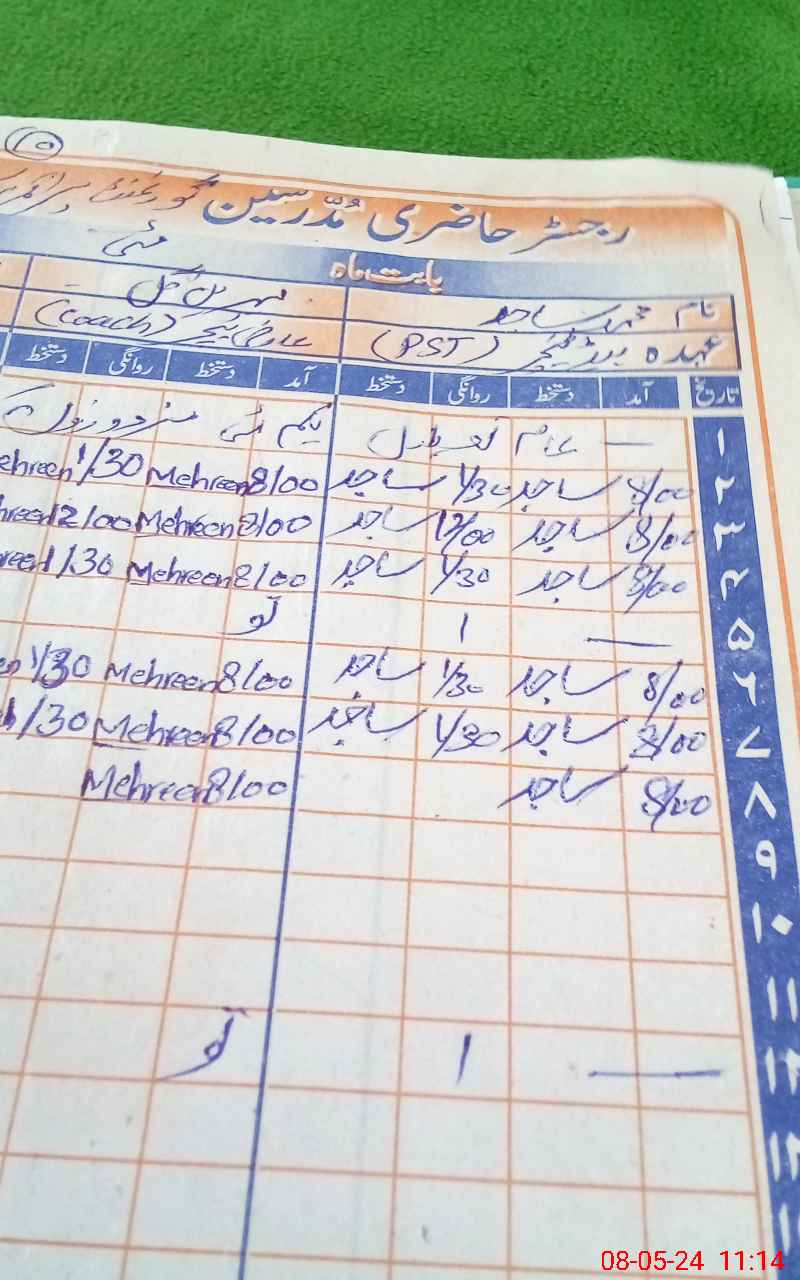 ۱۰
رجسٹر حاضری مُدّرسین گورنمنٹ
بابت ماہ مئی
نام محمد ساجد
عہدہ ہیڈ ٹیچر (PST) عارضی ٹیچر (Coach)
تاریخ آمد دستخط روانگی دستخط آمد دستخط روانگی دستخط
۱ — عام تعطیل یکم مئی مزدور
۲ 8/00 ساجد 1/30 ساجد 8/00 Mehreen 1/30 Mehreen
۳ 8/00 ساجد 12/00 ساجد 8/00 Mehreen 12/00
۴ 8/00 ساجد 1/30 ساجد 8/00 Mehreen 1/30
۵ — ا تو
۶ 8/00 ساجد 1/30 ساجد 8/00 Mehreen 1/30
۷ 8/00 ساجد 1/30 ساجد 8/00 Mehreen 1/30
۸ 8/00 ساجد 8/00 Mehreen
۹
۱۰
۱۱
۱۲ — ا تو
۱۳
08-05-24 11:14